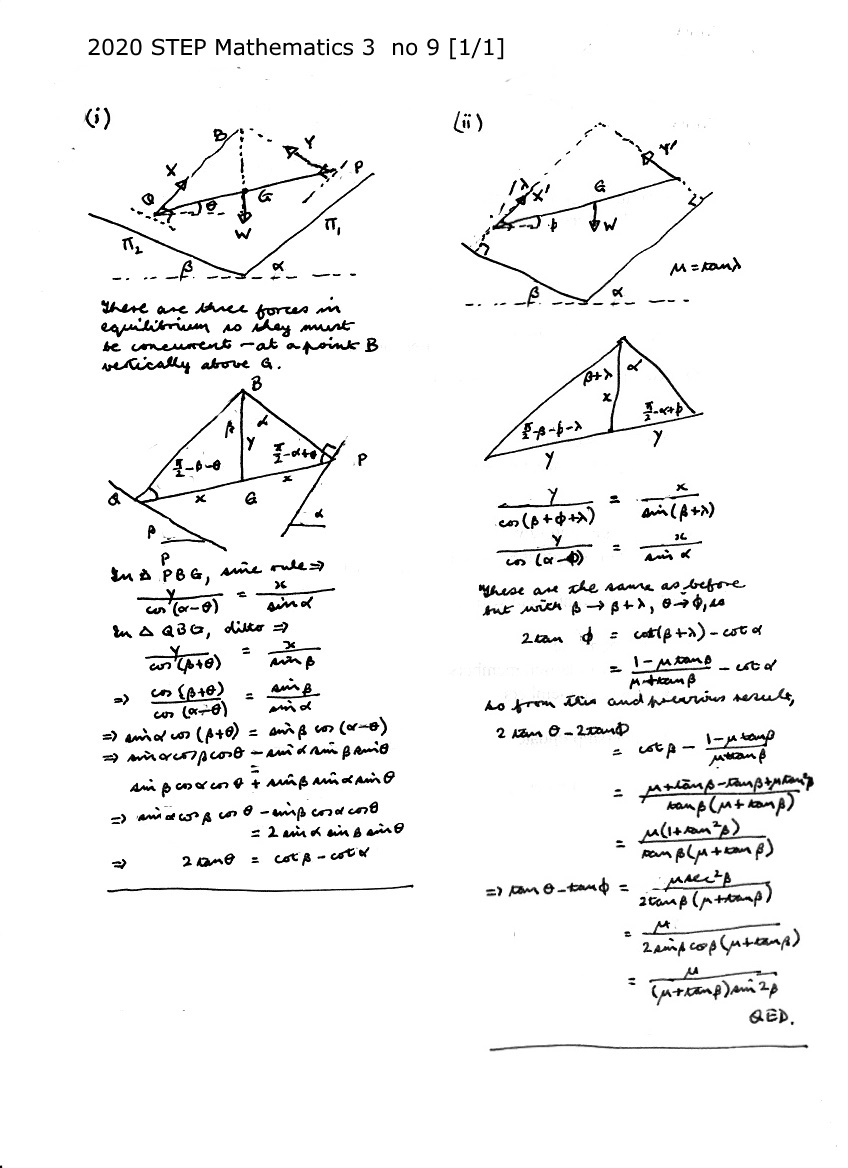 2020 STEP Mathematics 3 no 9 [1/1]
(i)
B
X
Y
P
Q
θ
G
W
Π₂
Π₁
β
α
There are three forces in
equilibrium so they must
be concurrent – at a point B
vertically above G.
B
β
α
y
π/2-β-θ
π/2-α+θ
P
Q
x
G
x
β
α
P
In Δ PBG, sine rule ⇒
y/cos(α-θ) = x/sinα
In Δ QBG, ditto ⇒
y/cos(β+θ) = x/sinβ
⇒ cos(β+θ)/cos(α-θ) = sinβ/sinα
⇒ sinα cos(β+θ) = sinβ cos(α-θ)
⇒ sinα cosβ cosθ - sinα sinβ sinθ
=
sinβ cosα cosθ + sinβ sinα sinθ
⇒ sinα cosβ cosθ - sinβ cosα cosθ
= 2 sinα sinβ sinθ
⇒ 2 tanθ = cotβ - cotα
(ii)
λ
X'
Y'
G
φ
W
β
α
μ = tanλ
β+λ
α
x
π/2-β-φ-λ
π/2-α+φ
y
y
y/cos(β+φ+λ) = x/sin(β+λ)
y/cos(α-φ) = x/sinα
These are the same as before
but with β → β+λ, θ → φ, so
2 tan φ = cot(β+λ) - cotα
= (1-μtanβ)/(μ+tanβ) - cotα
so from this and previous result,
2 tanθ - 2tanφ
= cotβ - (1-μtanβ)/(μ+tanβ)
= (μ+tanβ-tanβ+μtan²β)/(tanβ(μ+tanβ))
= μ(1+tan²β)/(tanβ(μ+tanβ))
⇒ tanθ - tanφ = μsec²β/(2tanβ(μ+tanβ))
= μ/(2sinβcosβ(μ+tanβ))
= μ/((μ+tanβ)sin2β)
QED.